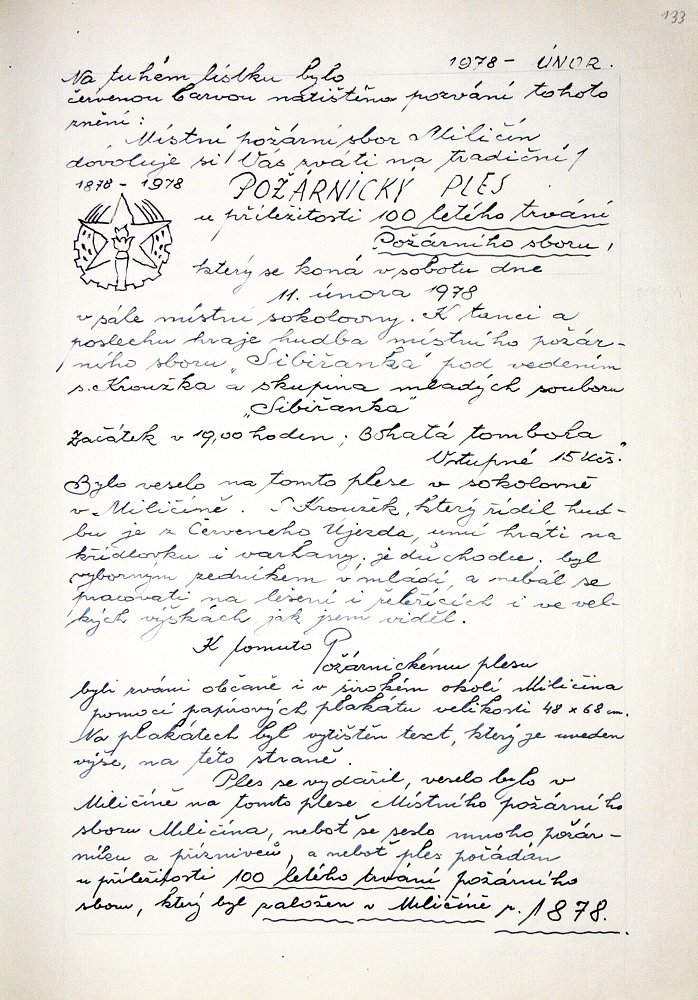 133
1978 - ÚNOR.
Na tuhém lístku bylo
červenou barvou natištěno pozvání tohoto
znění:
Místní požární sbor Miličín
dovoluje si Vás zváti na tradiční
1878 - 1978 POŽÁRNICKÝ PLES
u příležitosti 100 letého trvání
Požárního sboru,
který se koná v sobotu dne
11. února 1978
v sále místní sokolovny. K tanci a
poslechu hraje hudba místního požár-
ního sboru „Sibiřanka" pod vedením
s. Kroužka a skupina mladých souboru
„Sibiřanka"
Začátek v 19,00 hoden; Bohatá tombola
Vstupné 15 Kčs."
Bylo veselo na tomto plese v sokolovně
v Miličíně. S Kroužek, který řídil hud-
bu je z Červeneho Újezda, umí hráti na
křídlovku i varhany, je důchodce, byl
výborným zedníkem v mládí, a nebál se
pracovati na lešení i žebřících i ve vel-
kých výškách jak jsem viděl.
K tomuto Požárnickému plesu
byli zváni občané i v širokém okolí Miličína
pomocí papírových plakátu velikosti 48 x 68 cm.
Na plakátech byl vytištěn text, který je uveden
výše, na této straně.
Ples se vydařil, veselo bylo v
Miličíně na tomto plese Místního požárního
sboru Miličína, neboť se sešlo mnoho požár-
níku a příznivců, a neboť ples pořádán
u příležitosti 100 letého trvání požárního
sboru, který byl založen v Miličíně r. 1878.